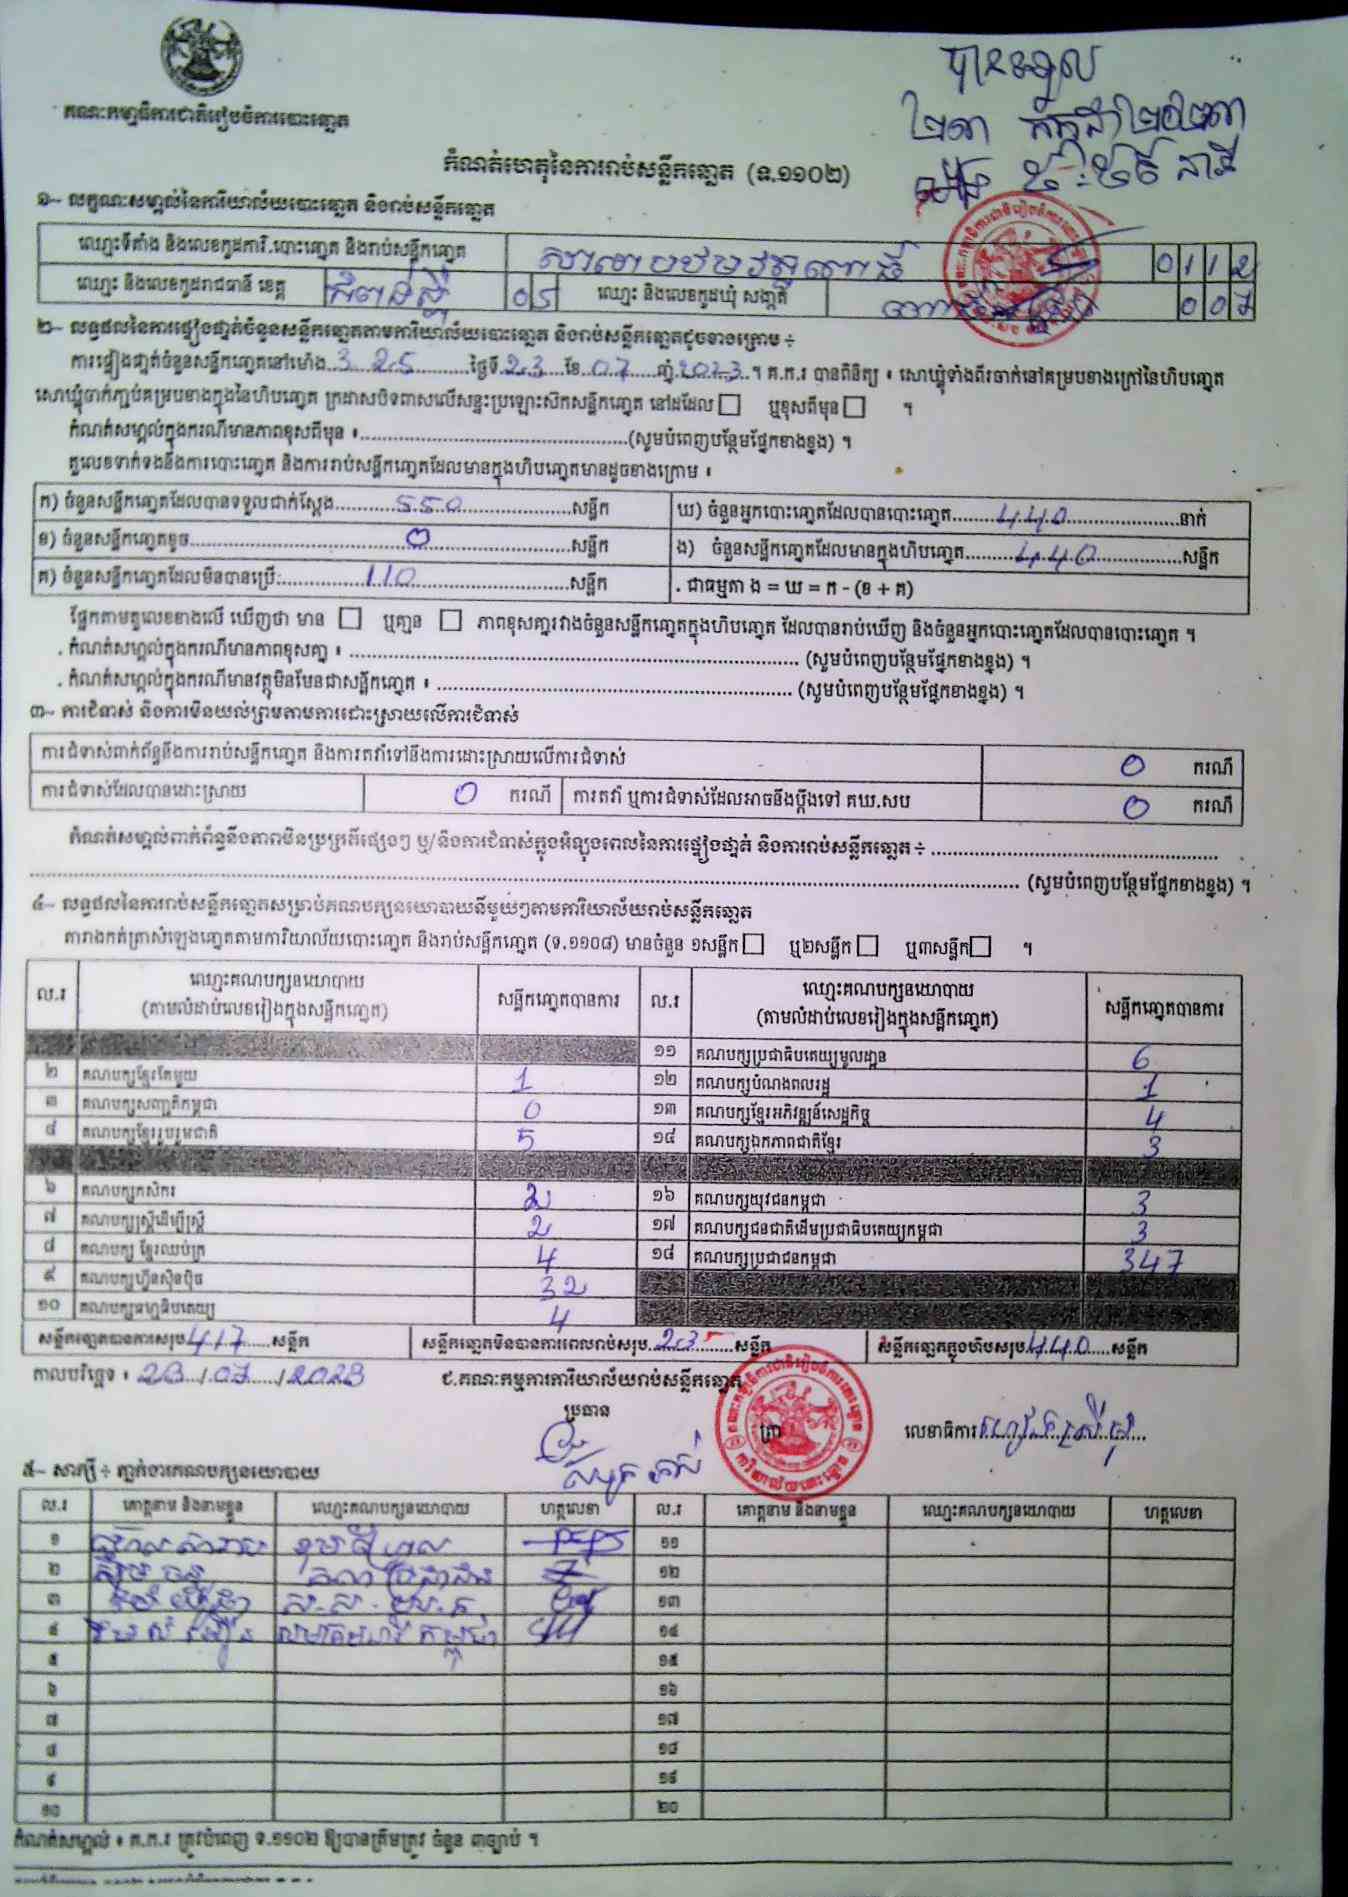 គណៈកម្មាធិការជាតិរៀបចំការបោះឆ្នោត
បានទទួល
កំណត់ហេតុនៃការរាប់សន្លឹកឆ្នោត (ទ.១១០២)
១~ លក្ខណៈសម្គាល់នៃការិយាល័យបោះឆ្នោត និងរាប់សន្លឹកឆ្នោត
ឈ្មោះទីតាំង និងលេខកូដការិ.បោះឆ្នោត និងរាប់សន្លឹកឆ្នោត 0112
ឈ្មោះ និងលេខកូដរាជធានី ខេត្ត កំពង់ស្ពឺ 05 ឈ្មោះ និងលេខកូដឃុំ សង្កាត់ 007
២~ លទ្ធផលនៃការផ្ទៀងផ្ទាត់ចំនួនសន្លឹកឆ្នោតតាមការិយាល័យបោះឆ្នោត និងរាប់សន្លឹកឆ្នោតដូចខាងក្រោម ÷
ការផ្ទៀងផ្ទាត់ចំនួនសន្លឹកឆ្នោតនៅម៉ោង 3 25 ថ្ងៃទី 23 ខែ 07 ឆ្នាំ 2023 ។ គ.ក.រ បានពិនិត្យ ៖ សោឃ្នុំទាំងពីរចាក់នៅគម្របខាងក្រៅនៃហិបឆ្នោត
សោឃ្នុំចាក់ភ្ជាប់គម្របខាងក្នុងនៃហិបឆ្នោត ក្រដាសបិទពាសលើសន្ទះប្រឡោះសឹកសន្លឹកឆ្នោត នៅដដែល □ ឬខុសពីមុន □ ។
កំណត់សម្គាល់ក្នុងករណីមានភាពខុសពីមុន ៖ (សូមបំពេញបន្ថែមផ្នែកខាងខ្នង) ។
តួលេខទាក់ទងនឹងការបោះឆ្នោត និងការរាប់សន្លឹកឆ្នោតដែលមានក្នុងហិបឆ្នោតមានដូចខាងក្រោម ៖
ក) ចំនួនសន្លឹកឆ្នោតដែលបានទទួលជាក់ស្តែង 550 សន្លឹក ឃ) ចំនួនអ្នកបោះឆ្នោតដែលបានបោះឆ្នោត 440 នាក់
ខ) ចំនួនសន្លឹកឆ្នោតខូច 0 សន្លឹក ង) ចំនួនសន្លឹកឆ្នោតដែលមានក្នុងហិបឆ្នោត 440 សន្លឹក
គ) ចំនួនសន្លឹកឆ្នោតដែលមិនបានប្រើ: 110 សន្លឹក . ជាធម្មតា ង = ឃ = ក - (ខ + គ)
ផ្អែកតាមតួលេខខាងលើ ឃើញថា មាន □ ឬគ្មាន □ ភាពខុសគ្នារវាងចំនួនសន្លឹកឆ្នោតក្នុងហិបឆ្នោត ដែលបានរាប់ឃើញ និងចំនួនអ្នកបោះឆ្នោតដែលបានបោះឆ្នោត ។
. កំណត់សម្គាល់ក្នុងករណីមានភាពខុសគ្នា ៖ (សូមបំពេញបន្ថែមផ្នែកខាងខ្នង) ។
. កំណត់សម្គាល់ក្នុងករណីមានវត្ថុមិនមែនជាសន្លឹកឆ្នោត ៖ (សូមបំពេញបន្ថែមផ្នែកខាងខ្នង) ។
៣~ ការជំទាស់ និងការមិនយល់ព្រមតាមការដោះស្រាយលើការជំទាស់
ការជំទាស់ពាក់ព័ន្ធនឹងការរាប់សន្លឹកឆ្នោត និងការតវ៉ាទៅនឹងការដោះស្រាយលើការជំទាស់ 0 ករណី
ការជំទាស់ដែលបានដោះស្រាយ 0 ករណី ការតវ៉ា ឬការជំទាស់ដែលអាចនឹងប្តឹងទៅ គឃ.សប 0 ករណី
កំណត់សម្គាល់ពាក់ព័ន្ធនឹងភាពមិនប្រក្រតីផ្សេងៗ ឬ/និងការជំទាស់ក្នុងអំឡុងពេលនៃការផ្ទៀងផ្ទាត់ និងការរាប់សន្លឹកឆ្នោត ÷
(សូមបំពេញបន្ថែមផ្នែកខាងខ្នង) ។
៤~ លទ្ធផលនៃការរាប់សន្លឹកឆ្នោតសម្រាប់គណបក្សនយោបាយនីមួយៗតាមការិយាល័យរាប់សន្លឹកឆ្នោត
តារាងកត់ត្រាសំឡេងឆ្នោតតាមការិយាល័យបោះឆ្នោត និងរាប់សន្លឹកឆ្នោត (ទ.១១០៨) មានចំនួន ១សន្លឹក □ ឬ២សន្លឹក □ ឬ៣សន្លឹក □ ។
ល.រ ឈ្មោះគណបក្សនយោបាយ (តាមលំដាប់លេខរៀងក្នុងសន្លឹកឆ្នោត) សន្លឹកឆ្នោតបានការ ល.រ ឈ្មោះគណបក្សនយោបាយ (តាមលំដាប់លេខរៀងក្នុងសន្លឹកឆ្នោត) សន្លឹកឆ្នោតបានការ
១១ គណបក្សប្រជាធិបតេយ្យមូលដ្ឋាន 6
២ គណបក្សខ្មែរតែមួយ 1 ១២ គណបក្សបំណងពលរដ្ឋ 1
៣ គណបក្សសញ្ជាតិកម្ពុជា 0 ១៣ គណបក្សខ្មែរអភិវឌ្ឍន៍សេដ្ឋកិច្ច 4
៤ គណបក្សខ្មែររួបរួមជាតិ 5 ១៤ គណបក្សឯកភាពជាតិខ្មែរ 3
៦ គណបក្សកសិករ 2 ១៦ គណបក្សយុវជនកម្ពុជា 3
៧ គណបក្សស្រ្តីដើម្បីស្រ្តី 2 ១៧ គណបក្សជនជាតិដើមប្រជាធិបតេយ្យកម្ពុជា 3
៨ គណបក្ស ខ្មែរឈប់ក្រ 4 ១៨ គណបក្សប្រជាជនកម្ពុជា 347
៩ គណបក្សហ្វ៊ុនស៊ិនប៉ិច 32
១០ គណបក្សធម្មាធិបតេយ្យ 4
សន្លឹកឆ្នោតបានការសរុប 417 សន្លឹក សន្លឹកឆ្នោតមិនបានការពេលរាប់សរុប 23 សន្លឹក សន្លឹកឆ្នោតក្នុងហិបសរុប 440 សន្លឹក
កាលបរិច្ឆេទ ៖ 23/07/2023 ៩.គណៈកម្មការការិយាល័យរាប់សន្លឹកឆ្នោត
ប្រធាន ត្រា លេខាធិការ
៥~ សាក្សី ÷ ភ្នាក់ងារគណបក្សនយោបាយ
ល.រ គោត្តនាម និងនាមខ្លួន ឈ្មោះគណបក្សនយោបាយ ហត្ថលេខា ល.រ គោត្តនាម និងនាមខ្លួន ឈ្មោះគណបក្សនយោបាយ ហត្ថលេខា
១ ១១
២ ១២
៣ ១៣
៤ ១៤
៥ ១៥
៦ ១៦
៧ ១៧
៨ ១៨
៩ ១៩
១០ ២០
កំណត់សម្គាល់ ៖ គ.ក.រ ត្រូវបំពេញ ទ.១១០២ ឱ្យបានត្រឹមត្រូវ ចំនួន ៣ច្បាប់ ។